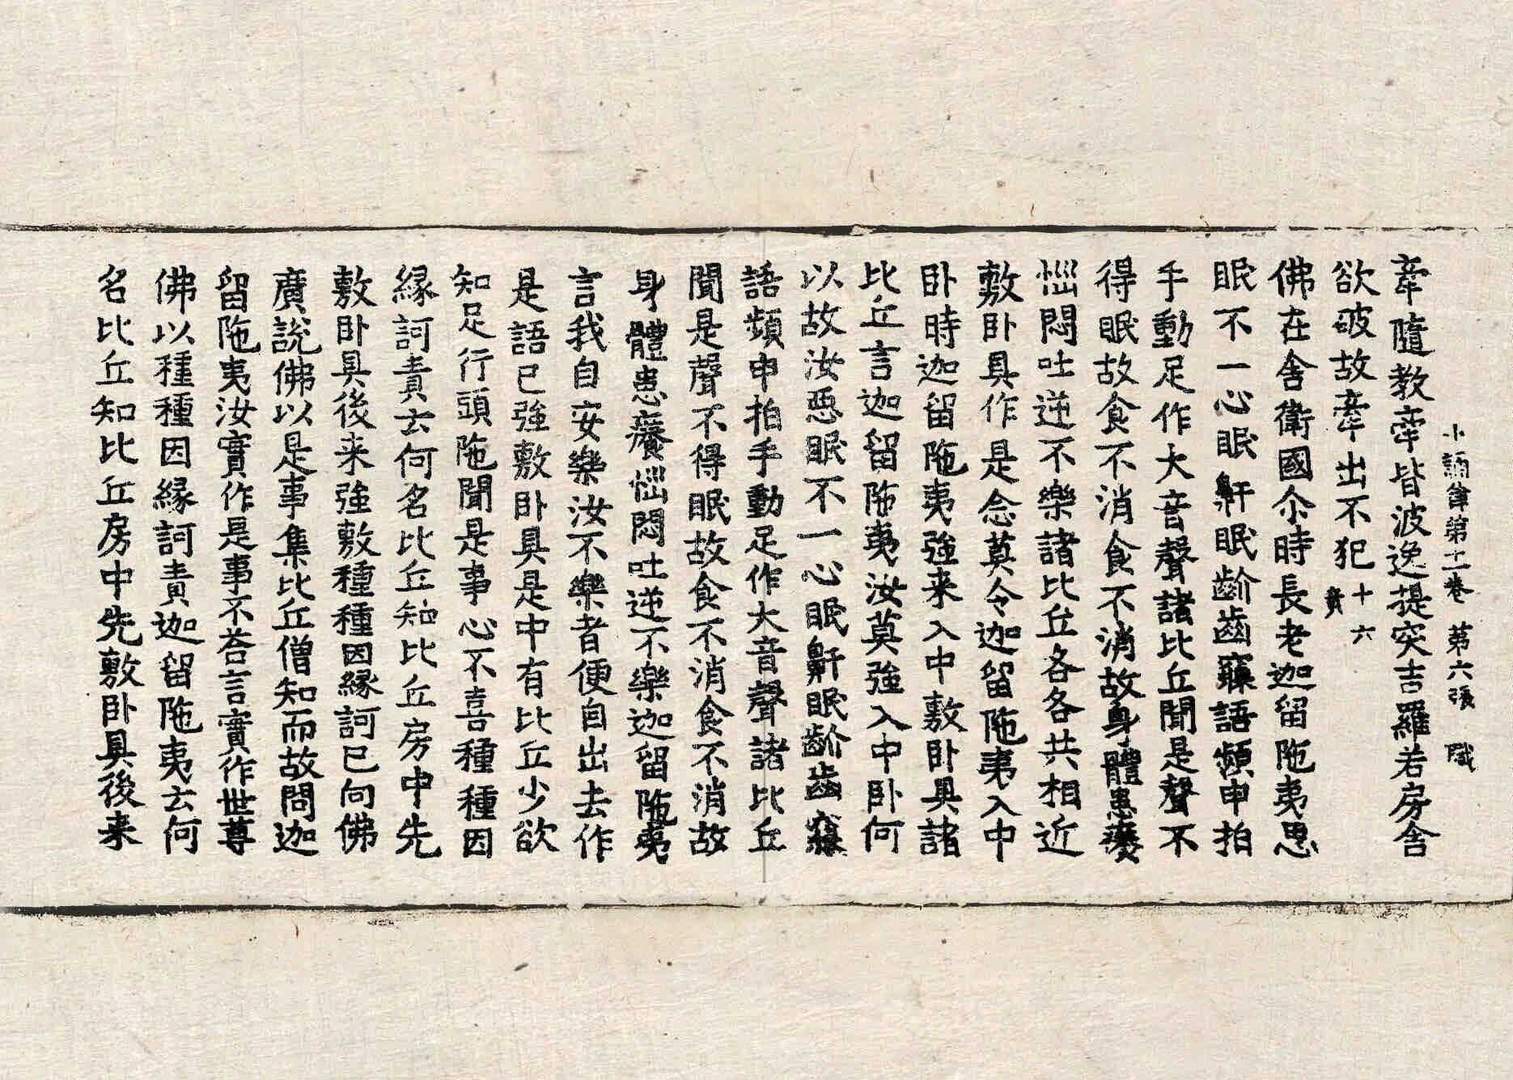 十誦律第十一卷 第六張 職
牽隨教牽皆波逸提突吉羅若房舍
欲破故牽出不犯 十六竟
佛在舍衛國尒時長老迦留陁夷惡
眠不一心眠鼾眠齘齒寱語頻申拍
手動足作大音聲諸比丘聞是聲不
得眠故食不消食不消故身體患癢
惱悶吐逆不樂諸比丘各各共相近
敷卧具作是念莫令迦留陁夷入中
卧時迦留陁夷強来入中敷卧具諸
比丘言迦留陁夷汝莫強入中卧何
以故汝惡眠不一心眠鼾眠齘齒寱
語頻申拍手動足作大音聲諸比丘
聞是聲不得眠故食不消食不消故
身體患癢惱悶吐逆不樂迦留陁夷
言我自安樂汝不樂者便自出去作
是語已強敷卧具是中有比丘少欲
知足行頭陁聞是事心不喜種種因
縁訶責云何名比丘知比丘房中先
敷卧具後来強敷種種因縁訶已向佛
廣說佛以是事集比丘僧知而故問迦
留陁夷汝實作是事不荅言實作世尊
佛以種種因縁訶責迦留陁夷云何
名比丘知比丘房中先敷卧具後来